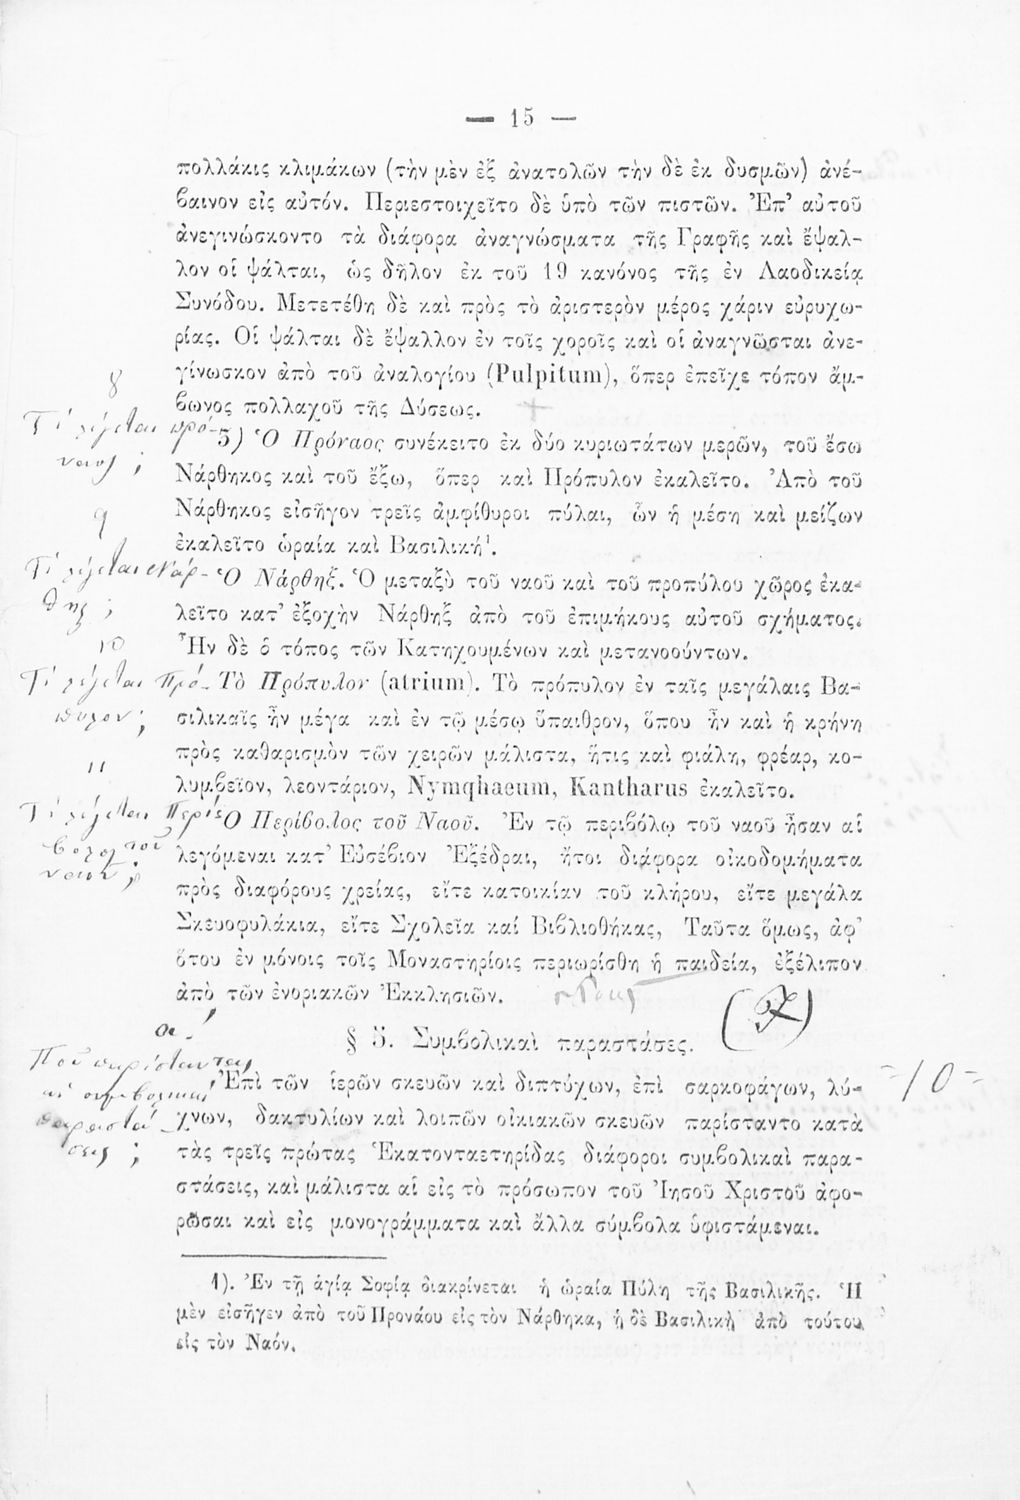 — 15 —
πολλάκις κλιμάκων (τὴν μὲν ἐξ ἀνατολῶν τὴν δὲ ἐκ δυσμῶν) ἀνέ-
βαινον εἰς αὐτόν. Περιεστοιχεῖτο δὲ ὑπὸ τῶν πιστῶν. Ἐπ' αὐτοῦ
ἀνεγινώσκοντο τὰ διάφορα ἀναγνώσματα τῆς Γραφῆς καὶ ἔψαλ-
λον οἱ ψάλται, ὡς δῆλον ἐκ τοῦ 19 κανόνος τῆς ἐν Λαοδικείᾳ
Συνόδου. Μετετέθη δὲ καὶ πρὸς τὸ ἀριστερὸν μέρος χάριν εὐρυχω-
ρίας. Οἱ ψάλται δὲ ἔψαλλον ἐν τοῖς χοροῖς καὶ οἱ ἀναγνῶσται ἀνε-
γίνωσκον ἀπὸ τοῦ ἀναλογίου (Pulpitum), ὅπερ ἐπεῖχε τόπον ἄμ-
βωνος πολλαχοῦ τῆς Δύσεως.
8
Τί λέγεται πρό-
ναος;
5) Ὁ Πρόναος συνέκειτο ἐκ δύο κυριωτάτων μερῶν, τοῦ ἔσω
Νάρθηκος καὶ τοῦ ἔξω, ὅπερ καὶ Πρόπυλον ἐκαλεῖτο. Ἀπὸ τοῦ
Νάρθηκος εἰσῆγον τρεῖς ἀμφίθυροι πύλαι, ὧν ἡ μέση καὶ μείζων
ἐκαλεῖτο ὡραία καὶ Βασιλική¹.
9
Τί λέγεται Νάρ-
θηξ;
Ὁ Νάρθηξ. Ὁ μεταξὺ τοῦ ναοῦ καὶ τοῦ προπύλου χῶρος ἐκα-
λεῖτο κατ' ἐξοχὴν Νάρθηξ ἀπὸ τοῦ ἐπιμήκους αὐτοῦ σχήματος.
Ἦν δὲ ὁ τόπος τῶν Κατηχουμένων καὶ μετανοούντων.
10
Τί λέγεται Πρό-
πυλον;
Τὸ Πρόπυλον (atrium). Τὸ πρόπυλον ἐν ταῖς μεγάλαις Βα-
σιλικαῖς ἦν μέγα καὶ ἐν τῷ μέσῳ ὕπαιθρον, ὅπου ἦν καὶ ἡ κρήνη
πρὸς καθαρισμὸν τῶν χειρῶν μάλιστα, ἥτις καὶ φιάλη, φρέαρ, κο-
λυμβεῖον, λεοντάριον, Nymqhaeum, Kantharus ἐκαλεῖτο.
11
Τί λέγεται Περί-
βολος τοῦ
ναοῦ;
Ὁ Περίβολος τοῦ Ναοῦ. Ἐν τῷ περιβόλῳ τοῦ ναοῦ ἦσαν αἱ
λεγόμεναι κατ' Εὐσέβιον Ἐξέδραι, ἤτοι διάφορα οἰκοδομήματα
πρὸς διαφόρους χρείας, εἴτε κατοικίαν τοῦ κλήρου, εἴτε μεγάλα
Σκευοφυλάκια, εἴτε Σχολεῖα καί Βιβλιοθήκας, Ταῦτα ὅμως, ἀφ'
ὅτου ἐν μόνοις τοῖς Μοναστηρίοις περιωρίσθη ἡ παιδεία, ἐξέλιπον
ἀπὸ τῶν ἐνοριακῶν Ἐκκλησιῶν.
§ 5. Συμβολικαὶ παραστάσεις.
Ποῦ παρίσταντο
αἱ συμβολικαὶ
παραστά-
σεις;
Ἐπὶ τῶν ἱερῶν σκευῶν καὶ διπτύχων, ἐπὶ σαρκοφάγων, λύ-
-10-
χνων, δακτυλίων καὶ λοιπῶν οἰκιακῶν σκευῶν παρίσταντο κατὰ
τὰς τρεῖς πρώτας Ἑκατονταετηρίδας διάφοροι συμβολικαὶ παρα-
στάσεις, καὶ μάλιστα αἱ εἰς τὸ πρόσωπον τοῦ Ἰησοῦ Χριστοῦ ἀφο-
ρῶσαι καὶ εἰς μονογράμματα καὶ ἄλλα σύμβολα ὑφιστάμεναι.
1). Ἐν τῇ ἁγίᾳ Σοφίᾳ διακρίνεται ἡ ὡραία Πύλη τῆς Βασιλικῆς. Ἡ
μὲν εἰσῆγεν ἀπὸ τοῦ Προνάου εἰς τὸν Νάρθηκα, ἡ δὲ Βασιλικὴ ἀπὸ τούτου
εἰς τὸν Ναόν.